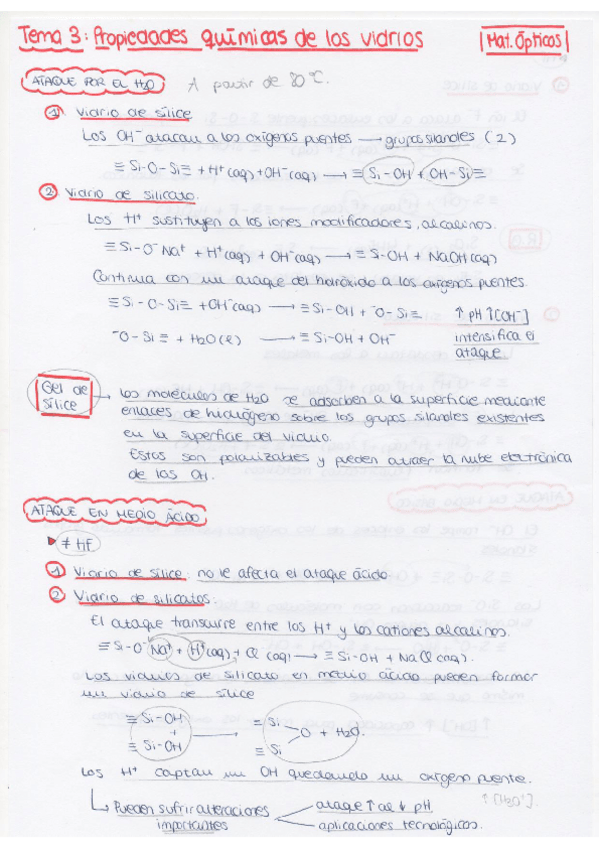 Tema 3: Propiedades químicas de los vidrios
Mat. Ópticos
ATAQUE POR EL H2O
A partir de 80°C.
① Vidrio de sílice
Los OH⁻ atacan a los oxígenos puentes → grupos silanoles (2)
≡ Si-O-Si ≡ + H⁺(aq) + OH⁻(aq) → ≡ Si-OH + OH-Si ≡
② Vidrio de silicato.
Los H⁺ sustituyen a los iones modificadores, alcalinos.
≡ Si-O⁻Na⁺ + H⁺(aq) + OH⁻(aq) → ≡ Si-OH + NaOH(aq)
Continua con un ataque del hidróxido a los oxígenos puentes.
≡ Si-O-Si ≡ + OH⁻(aq) → ≡ Si-OH + ⁻O-Si ≡
↑ pH ↑ [OH⁻]
⁻O-Si ≡ + H2O(l) → ≡ Si-OH + OH⁻
intensifica el
ataque
Gel de
sílice
→ Las moléculas de H2O se adsorben a la superficie mediante
enlaces de hidrógeno sobre los grupos silanoles existentes
en la superficie del vidrio.
Estos son polarizables y pueden atraer la nube electrónica
de los OH.
ATAQUE EN MEDIO ÁCIDO
≠ HF
① Vidrio de sílice: no le afecta el ataque ácido
② Vidrio de silicatos:
El ataque transcurre entre los H⁺ y los cationes alcalinos.
≡ Si-O⁻ Na⁺ + H⁺(aq) + Cl⁻(aq) → ≡ Si-OH + NaCl(aq).
Los vidrios de silicato en medio ácido pueden formar
un vidrio de sílice
≡ Si-OH
+
≡ Si-OH
→
≡ Si
≡ Si
O + H2O.
Los H⁺ captan un OH quedando un oxígeno puente.
Pueden sufrir alteraciones
importantes
ataque ↑ al ↓ pH
↑ [H3O⁺].
aplicaciones tecnológicas.